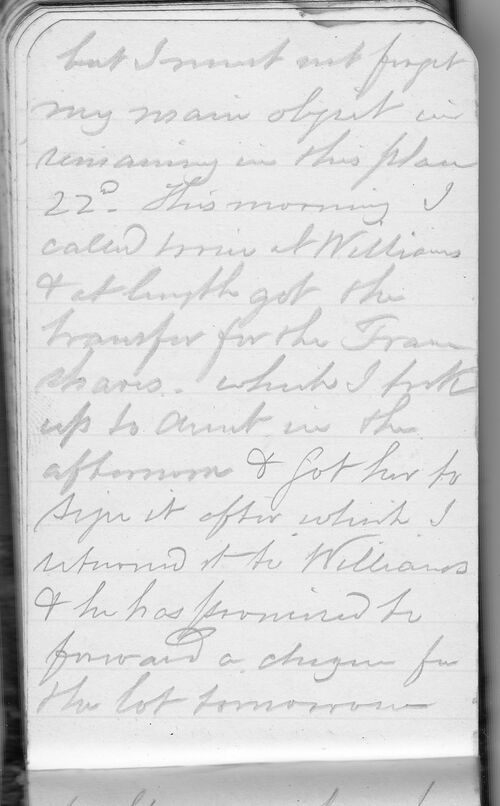 but I must not forget
my main object in
remaining in this place
22nd. This morning I
called twice at Williams
& at length got the
transfer for the Tram
shares. which I took
up to Aunt in the
afternoon & got her to
sign it after which I
returned it to Williams
& he has promised to
forward a cheque for
the lot tomorrow